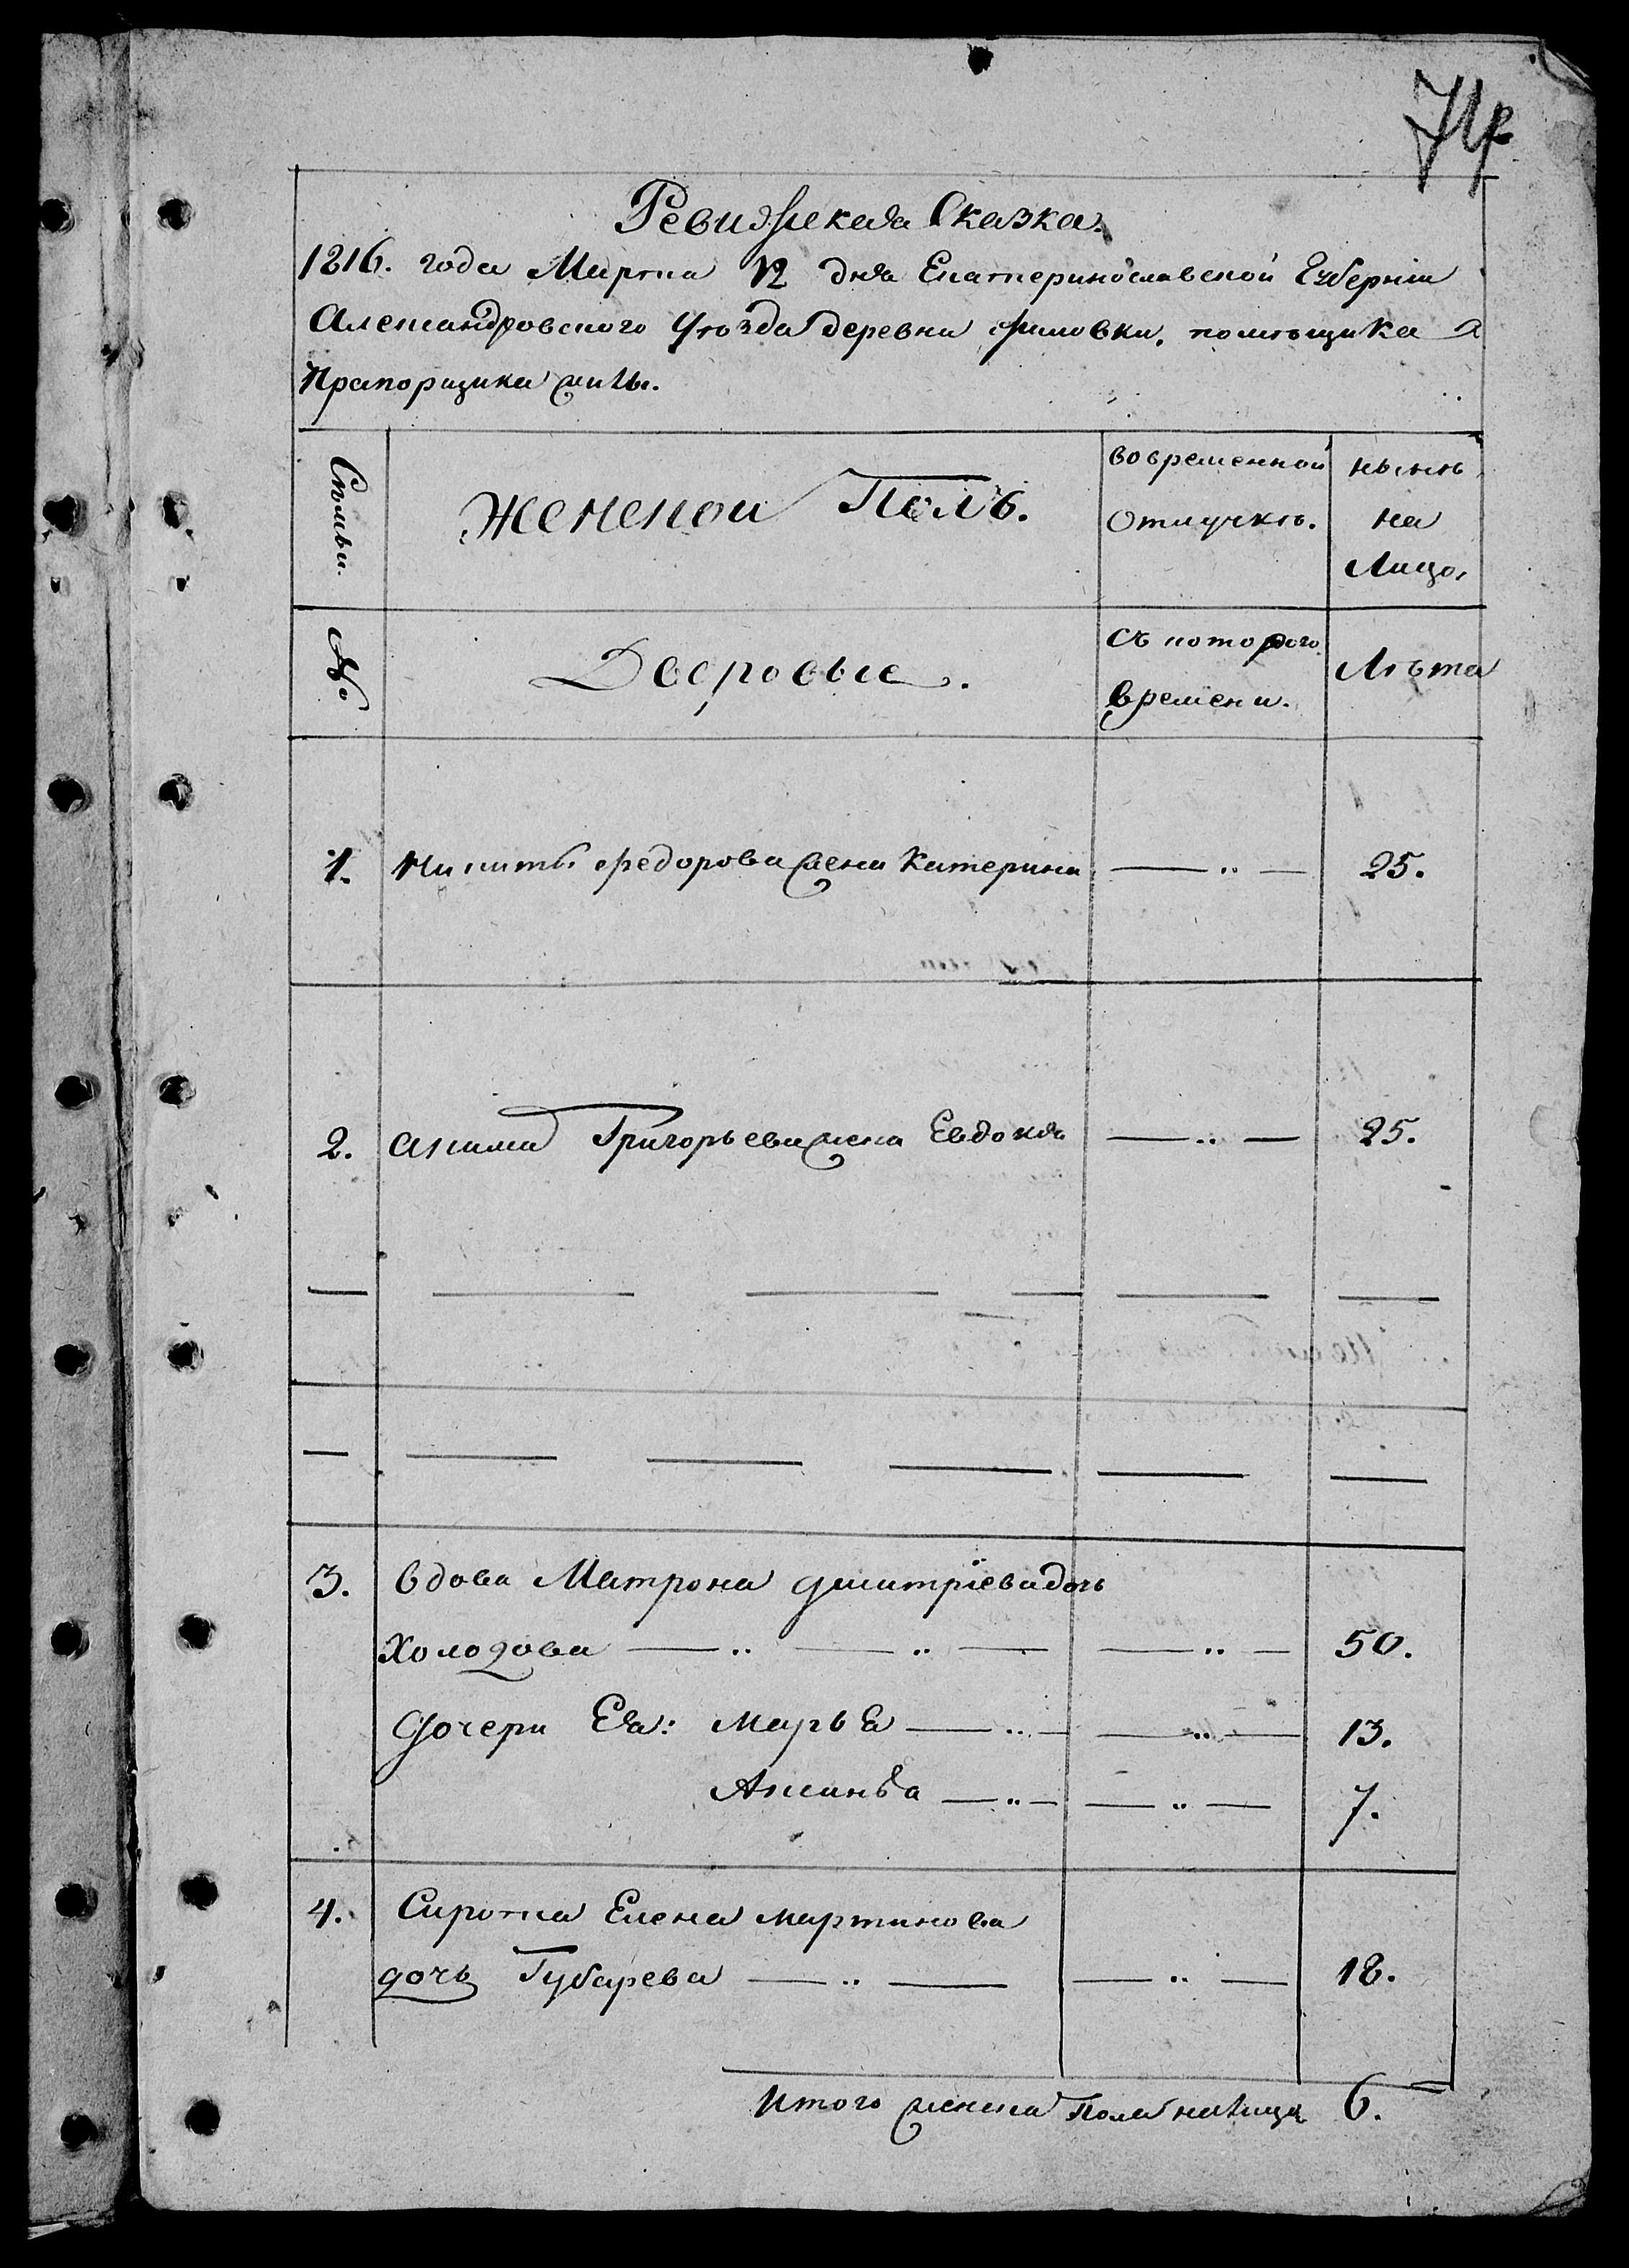 Ревижская Сказка.
1816. года Марта 12 дня Екатеринославской Губерніи
Александровского Уѣзда деревни помѣщика
Прапорщика
Женской Полъ.
вовременной
Отлучкѣ.
нынѣ
на
Лицо,
№
Дворовые.
съ которого
времени.
Лѣта
1. Никиты федорова жена Катерина 25.
2. акима Григорьева жена Евдокія 25.
3. вдова Матрона дмитріева дочь
Холодова 50.
дочери Ея: Марья 13.
Аксинья 7.
4. Сирота Елена мартинова
дочь Губарева 18.
Итого женска Пола налицо 6.